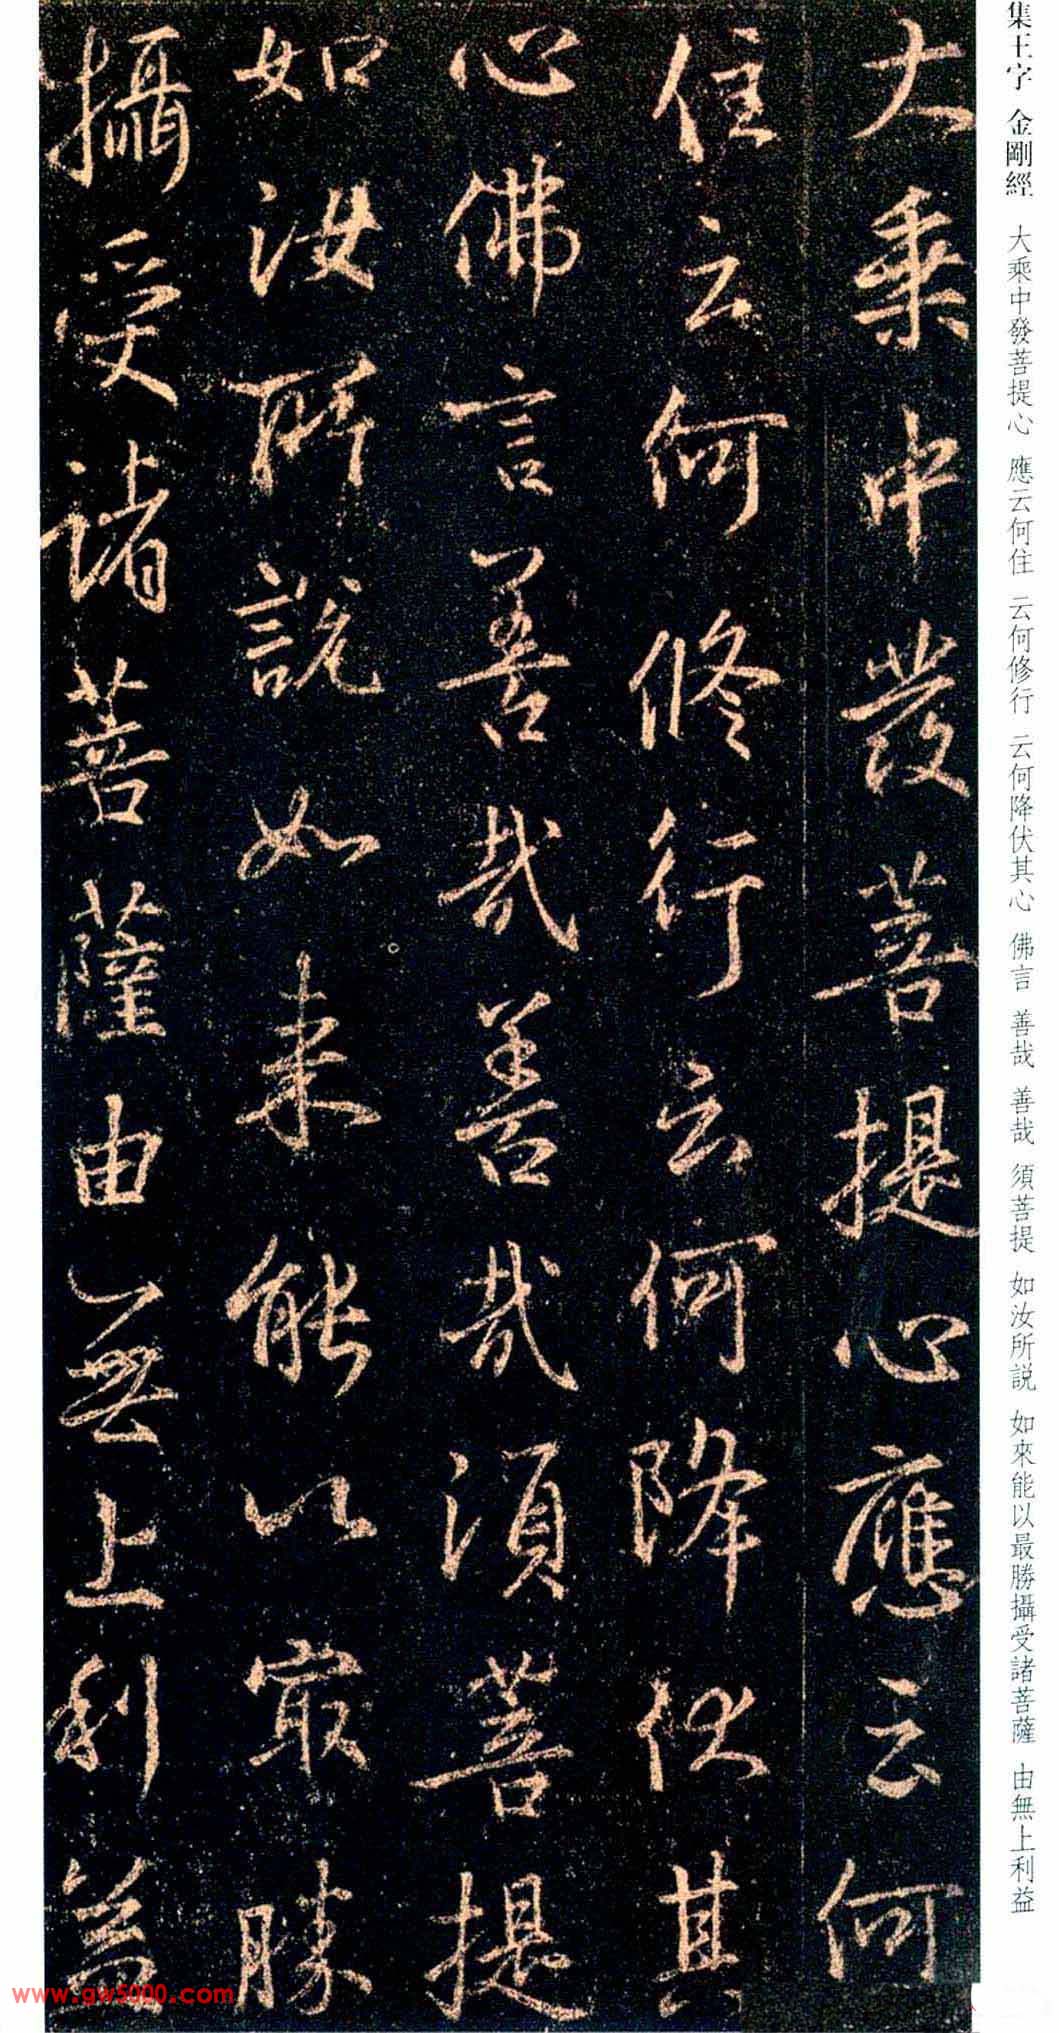 集王字 金剛經 大乘中發菩提心 應云何住 云何修行 云何降伏其心 佛言 善哉 善哉 須菩提 如汝所説 如來能以最勝攝受諸菩薩 由無上利益
大乘中發菩提心應云何
住云何修行云何降伏其
心佛言善哉善哉須菩提
如汝所說如來能以最勝
攝受諸菩薩由無上利益
www.gw5000.com